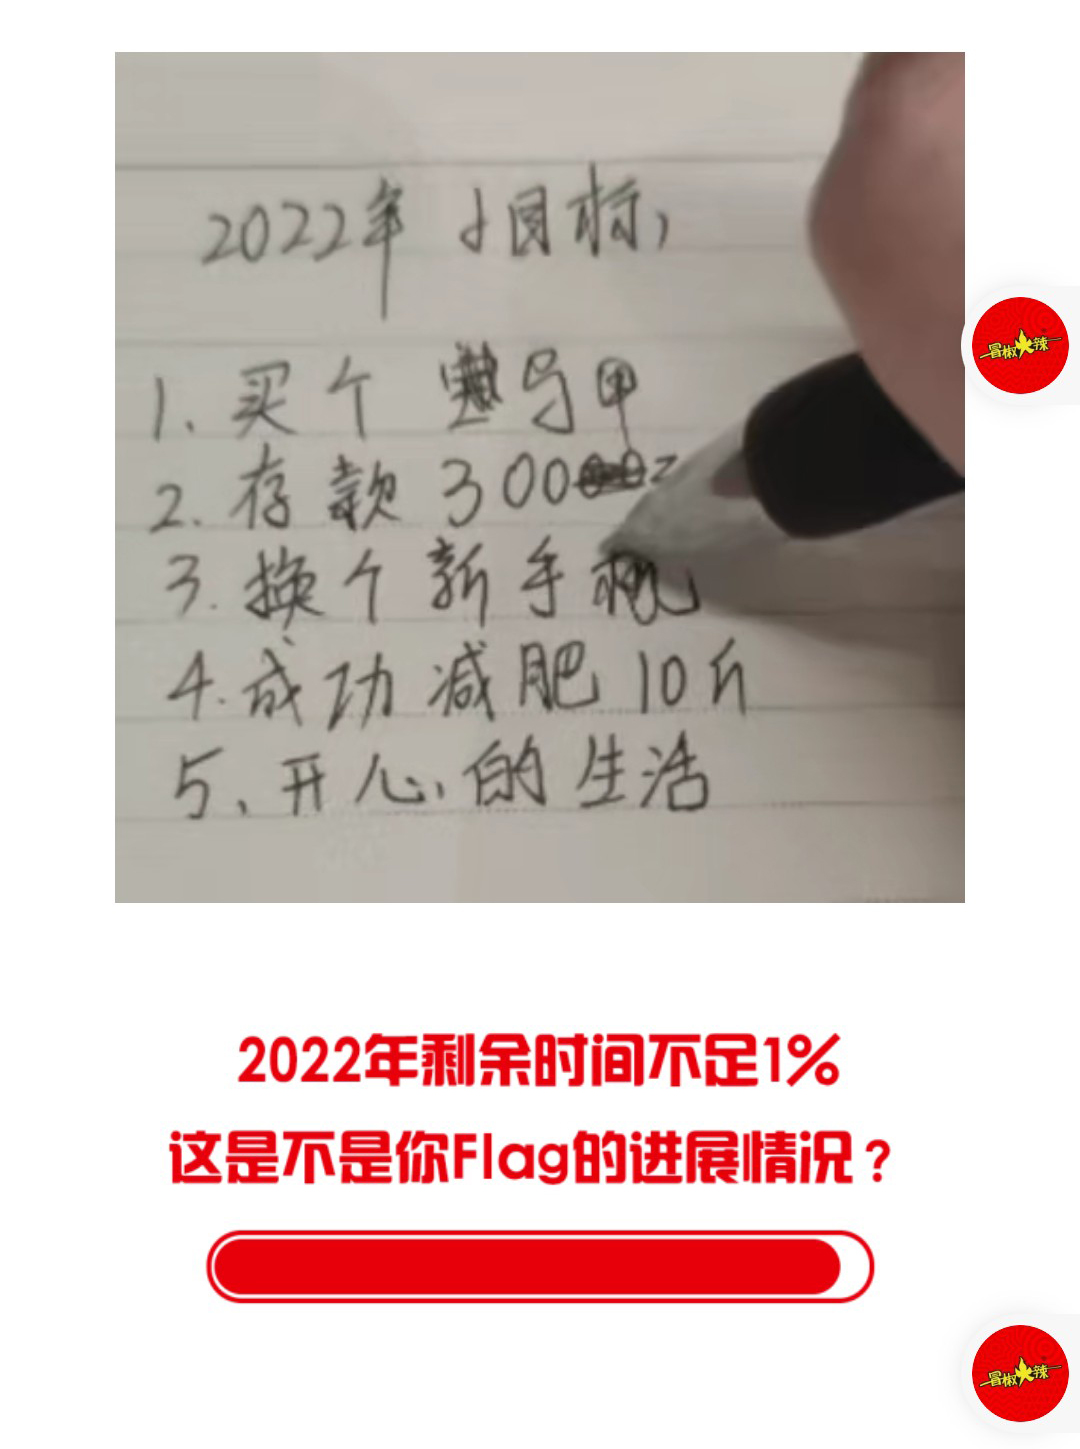 2022年 小目标,
1. 买个 马甲
2. 存款 300
3. 换个新手机
4. 成功减肥10斤
5、开心的生活
冒椒火辣
2022年剩余时间不足1%
这是不是你Flag的进展情况？
冒椒火辣